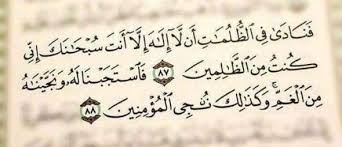 فَنَادَىٰ فِي ٱلظُّلُمَٰتِ أَن لَّآ إِلَٰهَ إِلَّآ أَنتَ سُبۡحَٰنَكَ إِنِّي
كُنتُ مِنَ ٱلظَّٰلِمِينَ ٨٧ فَٱسۡتَجَبۡنَا لَهُۥ وَنَجَّيۡنَٰهُ
مِنَ ٱلۡغَمِّۚ وَكَذَٰلِكَ نُۨجِي ٱلۡمُؤۡمِنِينَ ٨٨